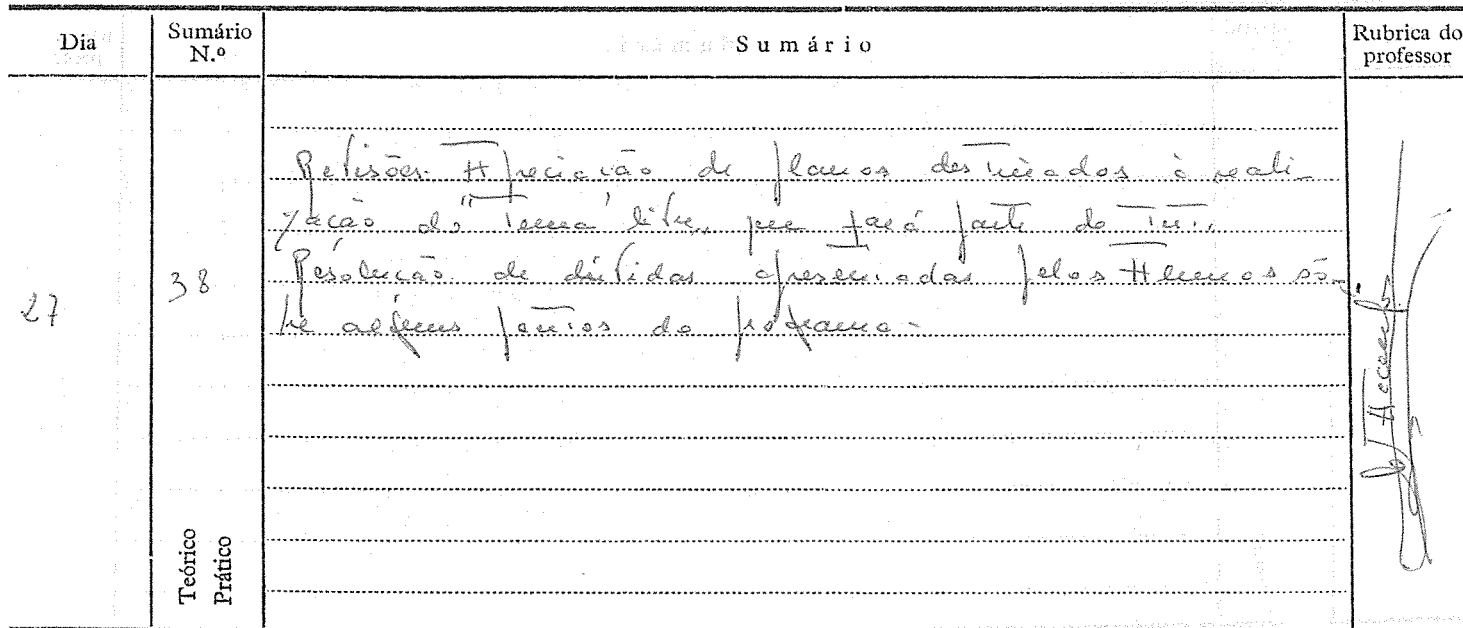 Dia
Sumário N.º
Sumário
Rubrica do professor
27
38
Revisões. Apreciação de planos destinados à reali-
zação do "Tema" livre, que fará parte do
Resolução de dúvidas apresentadas pelos Alunos sô-
bre alguns pontos do programa -
Teórico
Prático